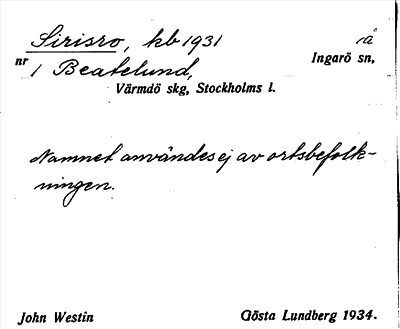 Sirisro, kb 1931 rå
nr 1 Beatelund, Ingarö sn,
Värmdö skg, Stockholms l.
Namnet användes ej av ortsbefolk-
ningen.
John Westin Gösta Lundberg 1934.